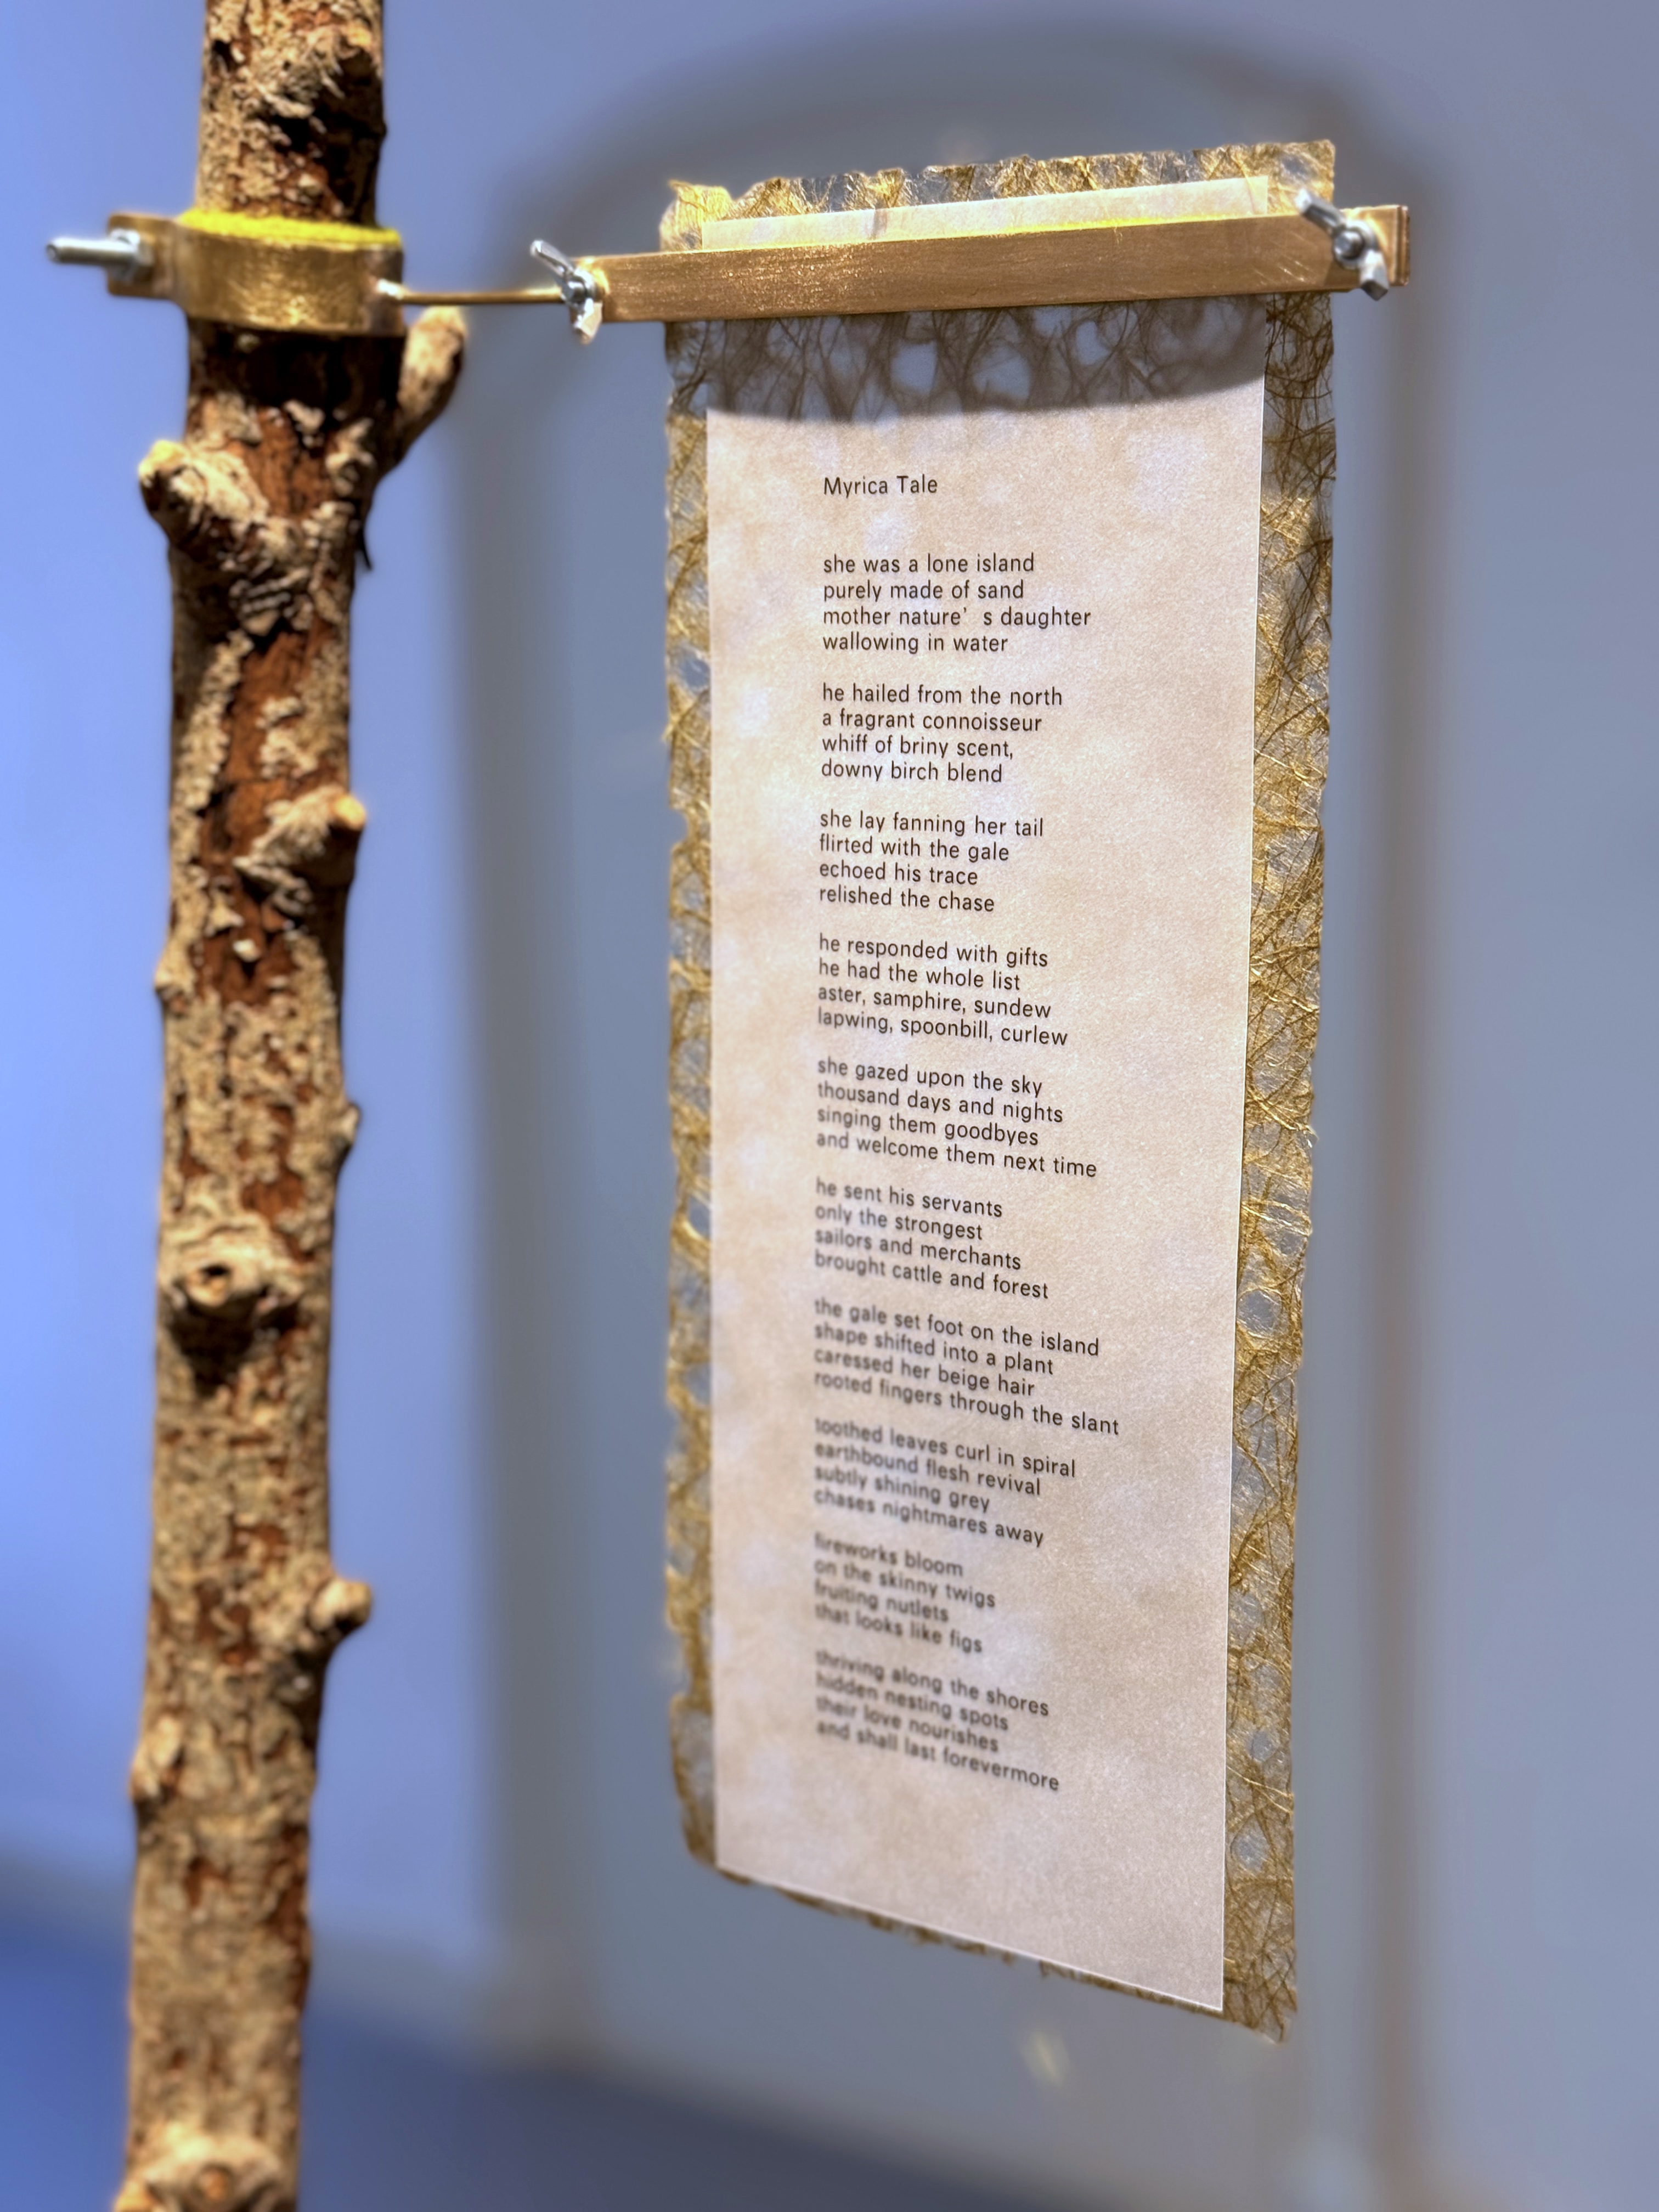 Myrica Tale
she was a lone island
purely made of sand
mother nature’ s daughter
wallowing in water
he hailed from the north
a fragrant connoisseur
whiff of briny scent,
downy birch blend
she lay fanning her tail
flirted with the gale
echoed his trace
relished the chase
he responded with gifts
he had the whole list
aster, samphire, sundew
lapwing, spoonbill, curlew
she gazed upon the sky
thousand days and nights
singing them goodbyes
and welcome them next time
he sent his servants
only the strongest
sailors and merchants
brought cattle and forest
the gale set foot on the island
shape shifted into a plant
caressed her beige hair
rooted fingers through the slant
toothed leaves curl in spiral
earthbound flesh revival
subtly shining grey
chases nightmares away
fireworks bloom
on the skinny twigs
fruiting nutlets
that looks like figs
thriving along the shores
hidden nesting spots
their love nourishes
and shall last forevermore